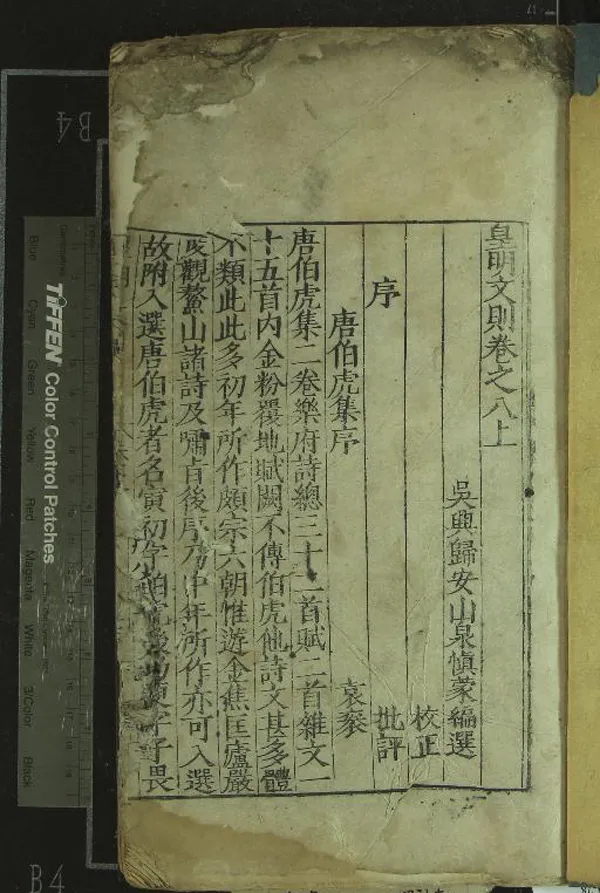 皇明文則卷之八上
吳興歸安山泉慎蒙編選
校正
序
批評
唐伯虎集序
袁袠
唐伯虎集二卷樂府詩總三十二首賦二首雜文一
十五首内金粉覆地賦闕不傳伯虎他詩文甚多體
不類此此多初年所作頗宗六朝惟遊金焦匡廬嚴
陵觀鰲山諸詩及嘯旨後序乃中年所作亦可入選
故附入選唐伯虎者名寅初字伯虎後更字子畏
TIFFEN Color Control Patches
Blue
Cyan
Green
Yellow
Red
Magenta
White
3/Color
Black
B4
B4